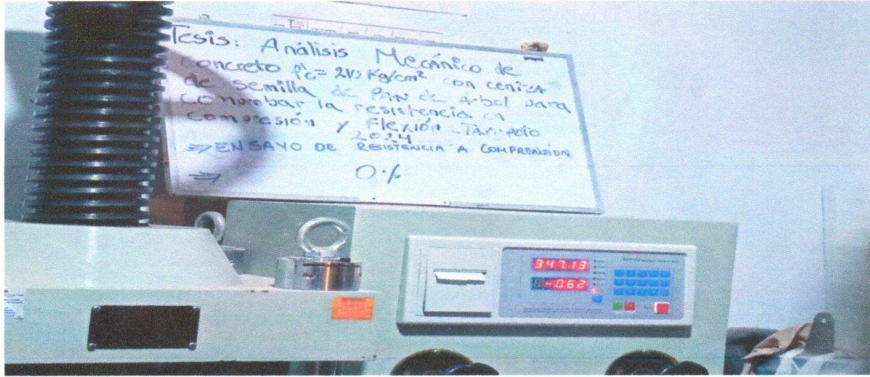 Tesis: Análisis Mecánico de
concreto f'c= 210 Kg/cm² con ceniza
de semilla de PAN de árbol para
comprobar la resistencia en
Compresión y Flexión -Tarapoto
2024
⇒ ENSAYO DE RESISTENCIA A COMPRENSION
⇒ 0%
347.13
-062